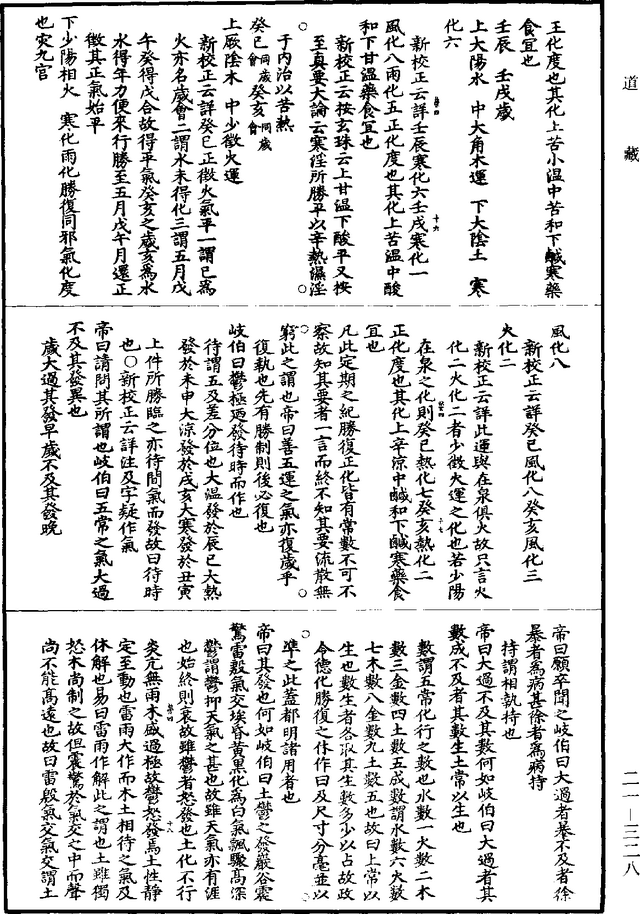 道藏
王化度也其化上苦小温中苦和下鹹寒藥
食宜也
壬辰　壬戌歲
上大陽水　中大角木運　下大陰土　寒
化六
新校正云詳壬辰寒化六壬戌寒化一
風化八雨化五正化度也其化上苦温中酸
和下甘溫藥食宜也
新校正云按玄珠云上甘温下酸平又按
至真要大論云寒淫所勝平以辛熱濕淫
于内治以苦熱
癸巳同歲會癸亥同歲會
上厥陰木　中少徵火運
新校正云詳癸巳正徵火氣平一謂巳爲
火亦名歲會二謂水未得化三謂五月戊
午癸得戊合故得平氣癸亥之歲亥爲水
水得年力便來行勝至五月戊午月還正
徵其正氣始平
下少陽相火　寒化雨化勝復同邪氣化度
也灾九宫
風化八
新校正云詳癸巳風化八癸亥風化三
火化二
新校正云詳此運與在泉俱火故只言火
化二火化二者少徵火運之化也若少陽
在泉之化則癸巳熱化七癸亥熱化二
正化度也其化上辛涼中鹹和下鹹寒藥食
宜也
凡此定期之紀勝復正化皆有常數不可不
察故知其要者一言而終不知其要流散無
窮此之謂也帝曰善五運之氣亦復歲乎
復執也先有勝制則後必復也
岐伯曰鬱極廼發待時而作也
待謂五及差分位也大温發於辰巳大熱
發於未申大涼發於戌亥大寒發於丑寅
上件所勝臨之亦待間氣而發故曰待時
也〇新校正云詳注及字疑作氣
帝曰請問其所謂也岐伯曰五常之氣大過
不及其發異也
歲大過其發早歲不及其發晚
帝曰願卒聞之岐伯曰大過者暴不及者徐
暴者爲病甚徐者爲病持
持謂相執持也
帝曰大過不及其數何如岐伯曰大過者其
數成不及者其數生土常以生也
數謂五常化行之數也水數一火數二木
數三金數四土數五成數謂水數六火數
七木數八金數九土數五也故曰土常以
生也數生者各取其生數多少以占故政
令德化勝復之休作日及尺寸分毫並以
準之此蓋都明諸用者也
帝曰其發也何如岐伯曰土鬱之發巖谷震
驚雷殷氣交埃昏黄黑化爲白氣飄驟髙深
鬱謂鬱抑天氣之甚也故雖天氣亦有涯
也始終則衰故雖鬱者怒發也土化不行
炎亢無雨木盛過極故鬱怒發焉土性靜
定至動也雷雨大作而木土相待之氣及
体解也易曰雷雨作解此之謂也土雖獨
怒木尚制之故但震驚於氣交之中而聲
尚不能髙遠也故曰雷殷氣交氣交謂土
二一—三二八